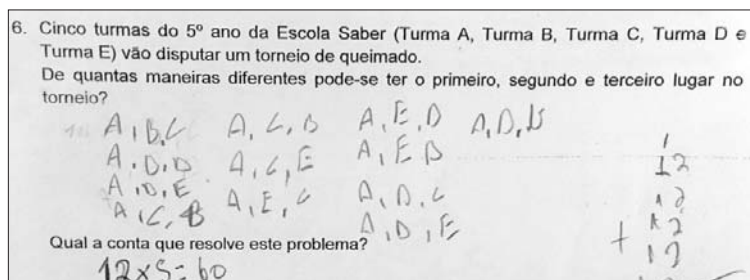 6. Cinco turmas do 5º ano da Escola Saber (Turma A, Turma B, Turma C, Turma D e
Turma E) vão disputar um torneio de queimado.
De quantas maneiras diferentes pode-se ter o primeiro, segundo e terceiro lugar no
torneio?
A, B, C A, C, D A, E, D A, D, B
A, B, D A, C, E A, E, B
A, B, E A, E, C A, D, C
A, C, B A, D, E
1
12
12
12
+ 12
Qual a conta que resolve este problema?
12 x 5 = 60